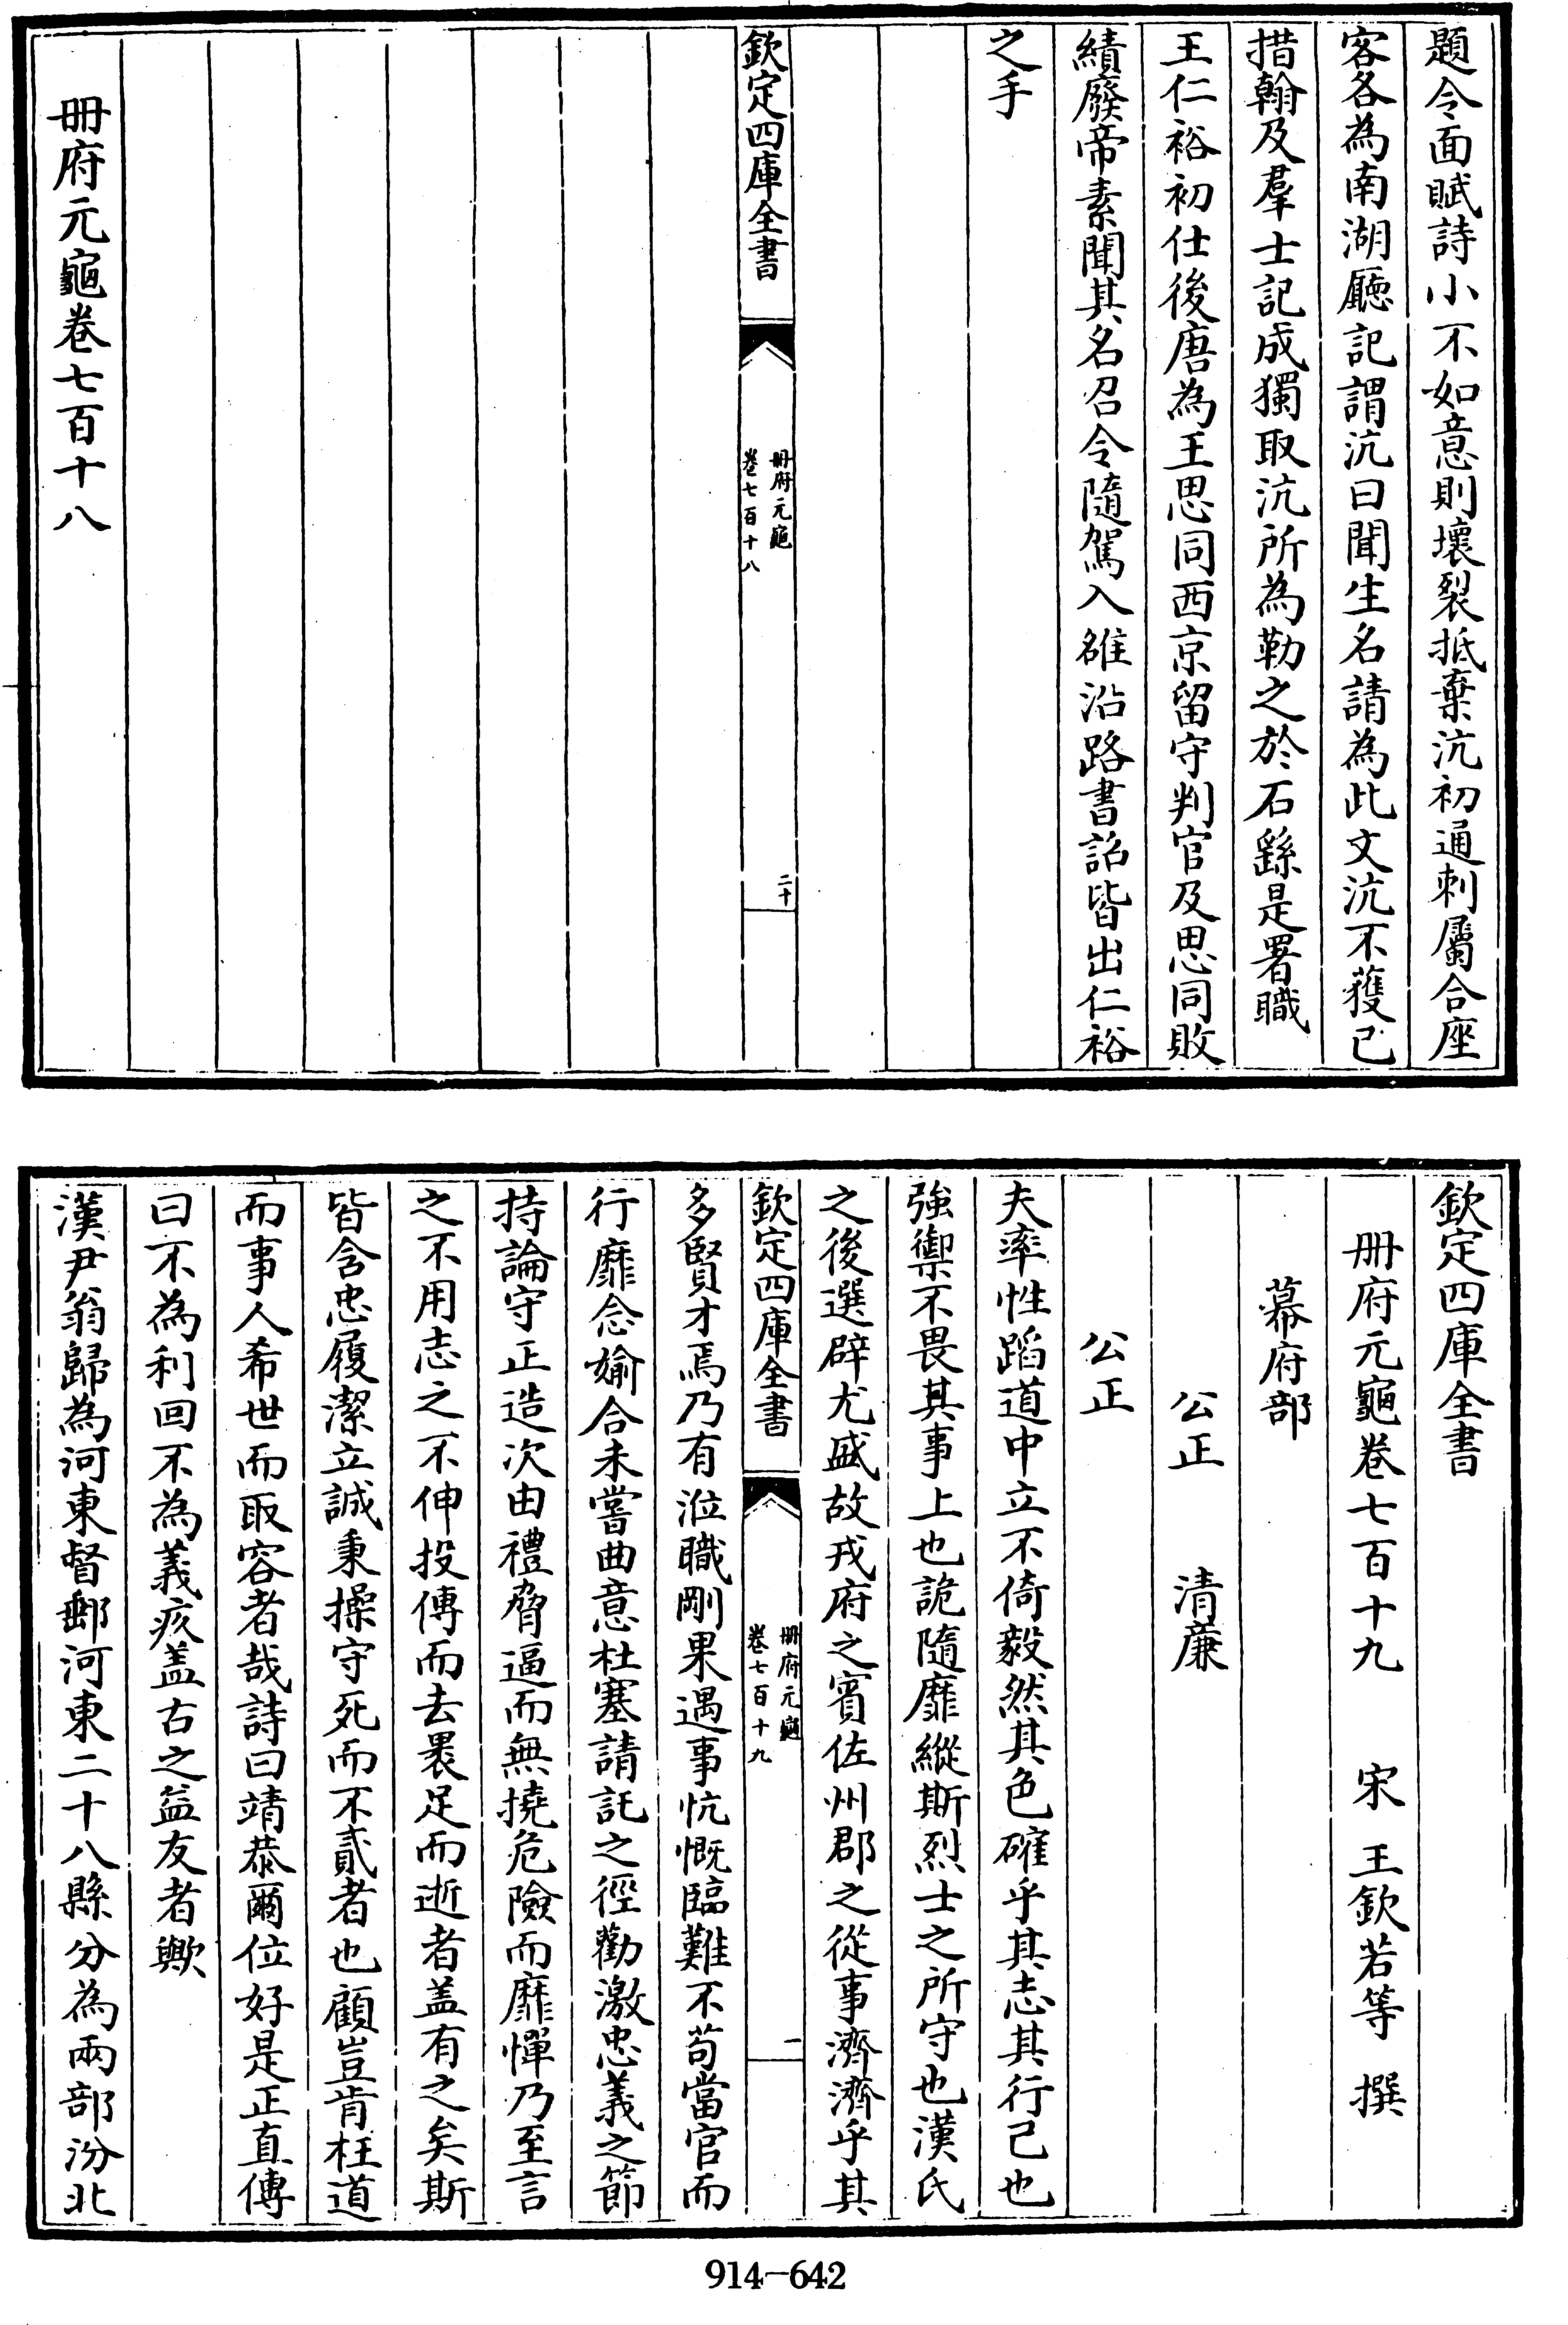 題令面賦詩小不如意則壞裂抵棄沆初通刺屬合座
客各為南湖廳記謂沆曰聞生名請為此文沆不獲已
措翰及羣士記成獨取沆所為勒之於石繇是署職
王仁裕初仕後唐為王思同西京留守判官及思同敗
績廢帝素聞其名召令隨駕入雒沿路書詔皆出仁裕
之手
欽定四庫全書
冊府元龜
卷七百十八
二十
冊府元龜卷七百十八
欽定四庫全書
冊府元龜卷七百十九 宋 王欽若等 撰
幕府部
公正 清廉
公正
夫率性蹈道中立不倚毅然其色確乎其志其行己也
強禦不畏其事上也詭隨靡縱斯烈士之所守也漢氏
之後選辟尤盛故戎府之賓佐州郡之從事濟濟乎其
欽定四庫全書
冊府元龜
卷七百十九
一
多賢才焉乃有涖職剛果遇事忼慨臨難不苟當官而
行靡念媮合未嘗曲意杜塞請託之徑勸激忠義之節
持論守正造次由禮脅逼而無撓危險而靡憚乃至言
之不用志之不伸投傳而去褁足而逝者盖有之矣斯
皆含忠履潔立誠秉操守死而不貳者也顧豈肯枉道
而事人希世而取容者哉詩曰靖恭爾位好是正直傳
曰不為利回不為義疚盖古之益友者歟
漢尹翁歸為河東督郵河東二十八縣分為兩部汾北
914-642